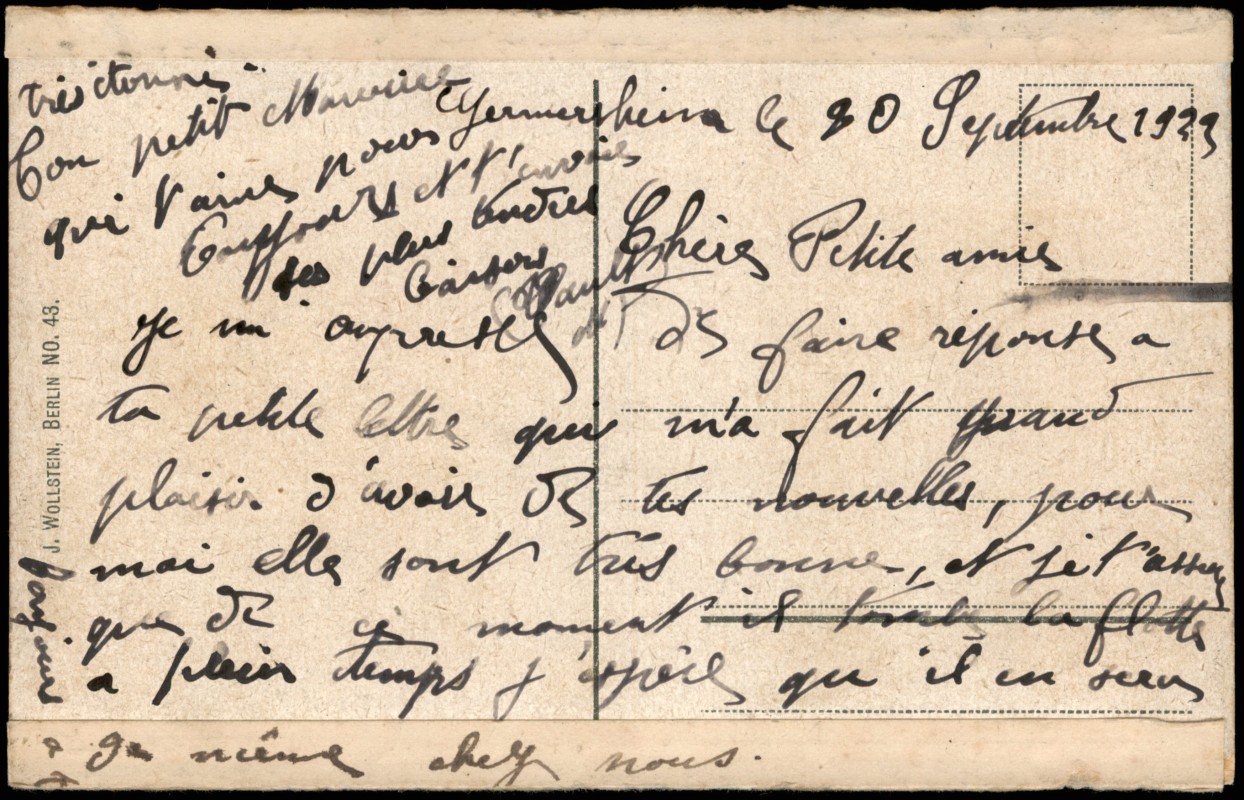 Germersheim le 20 Septembre 1923
Chère Petite amie
Je m'aupresse de faire réponse a
ta petite lettre qui m'a fait grand
plaisir d'avoir de tes nouvelles, pour
moi elle sont très bonne, et je t'assure
que de ce moment il tombe la flotte
a plein temps j'espère qu'il en sera
de même chez nous.
toujours
très étonné
Ton petit Maurice
qui t'aime pour
toujours et t'envoies
ses plus tendres
baisers
J. WOLLSTEIN, BERLIN NO. 43.